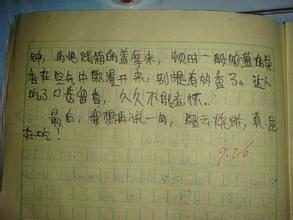 钟，再把烧箱的盖拿来，顿时一股的薄荷
香在空气中散漫开来，别提有多香了。让人
吃了口齿留香，久久不能忘怀。
最后，我想再说一句，烧烤，真是
好吃！
9.26